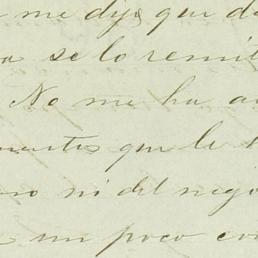 me dijo que d
a se lo remit
No me ha a
que le
ni del nego
un poco con